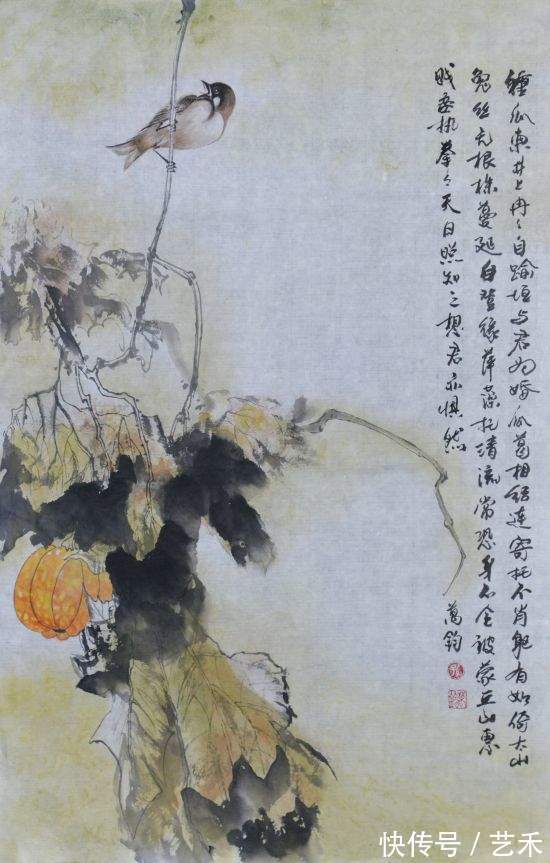 種瓜东井上冉々自踰垣与君为婚瓜葛相结连寄托不肖躯有如倚太山
兔丝无根株蔓延自登缘萍藻托清流常恐身不全被蒙丘山惠
贱妾执拳々天日照知之想君亦惧然
萬钧
快传号 / 艺禾